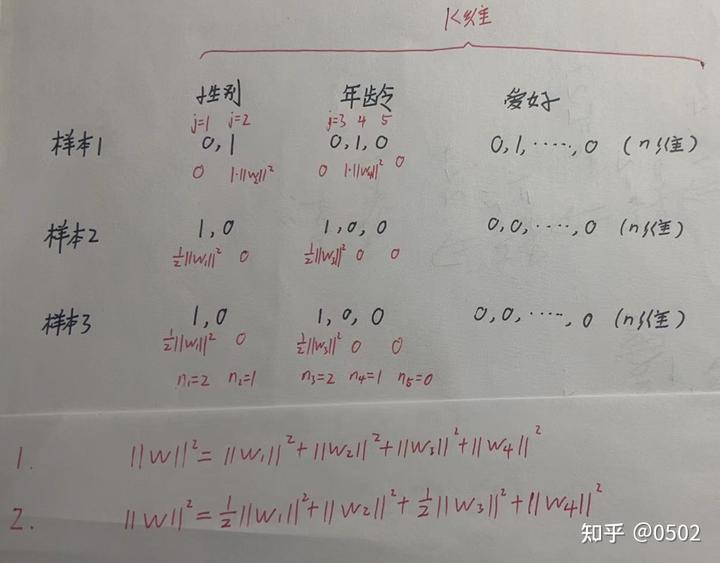 K维
性别 年龄 爱好
j=1 j=2 j=3 4 5
样本1 0,1 0,1,0 0,1,·····,0 (n维)
0 1·||w₂||² 0 1·||w₄||² 0
样本2 1,0 1,0,0 0,0,·····,0 (n维)
½||w₁||² 0 ½||w₃||² 0 0
样本3 1,0 1,0,0 0,0,·····,0 (n维)
½||w₁||² 0 ½||w₃||² 0 0
n₁=2 n₂=1 n₃=2 n₄=1 n₅=0
1. ||W||²=||W₁||²+||W₂||²+||W₃||²+||W₄||²
2. ||W||²=½||W₁||²+||W₂||²+½||W₃||²+||W₄||²
知乎 @0502